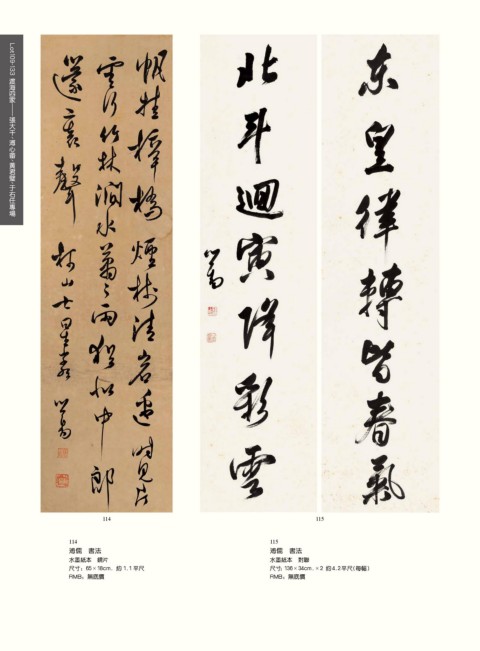 Lot109-133 渡海四家——張大千·溥心畬·黃君璧·于右任專場
煙樹清岩邊時見片
雲行竹林澗水蕭蕭雨猶似中郎
裏聲 山七星 心畬
東皇律轉皆春氣
北斗迴寅降彩雲
心畬
114
115
114
溥儒 書法
水墨紙本 鏡片
尺寸：65×18cm. 約 1.1平尺
RMB：無底價
115
溥儒 書法
水墨紙本 對聯
尺寸：136×34cm. ×2 約4.2平尺(每幅)
RMB：無底價